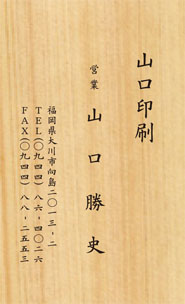 山口印刷
営業
山口勝史
福岡県大川市向島二〇一三‐二
TEL(〇九四四)八六‐四〇二六
FAX(〇九四四)八八‐二五五三